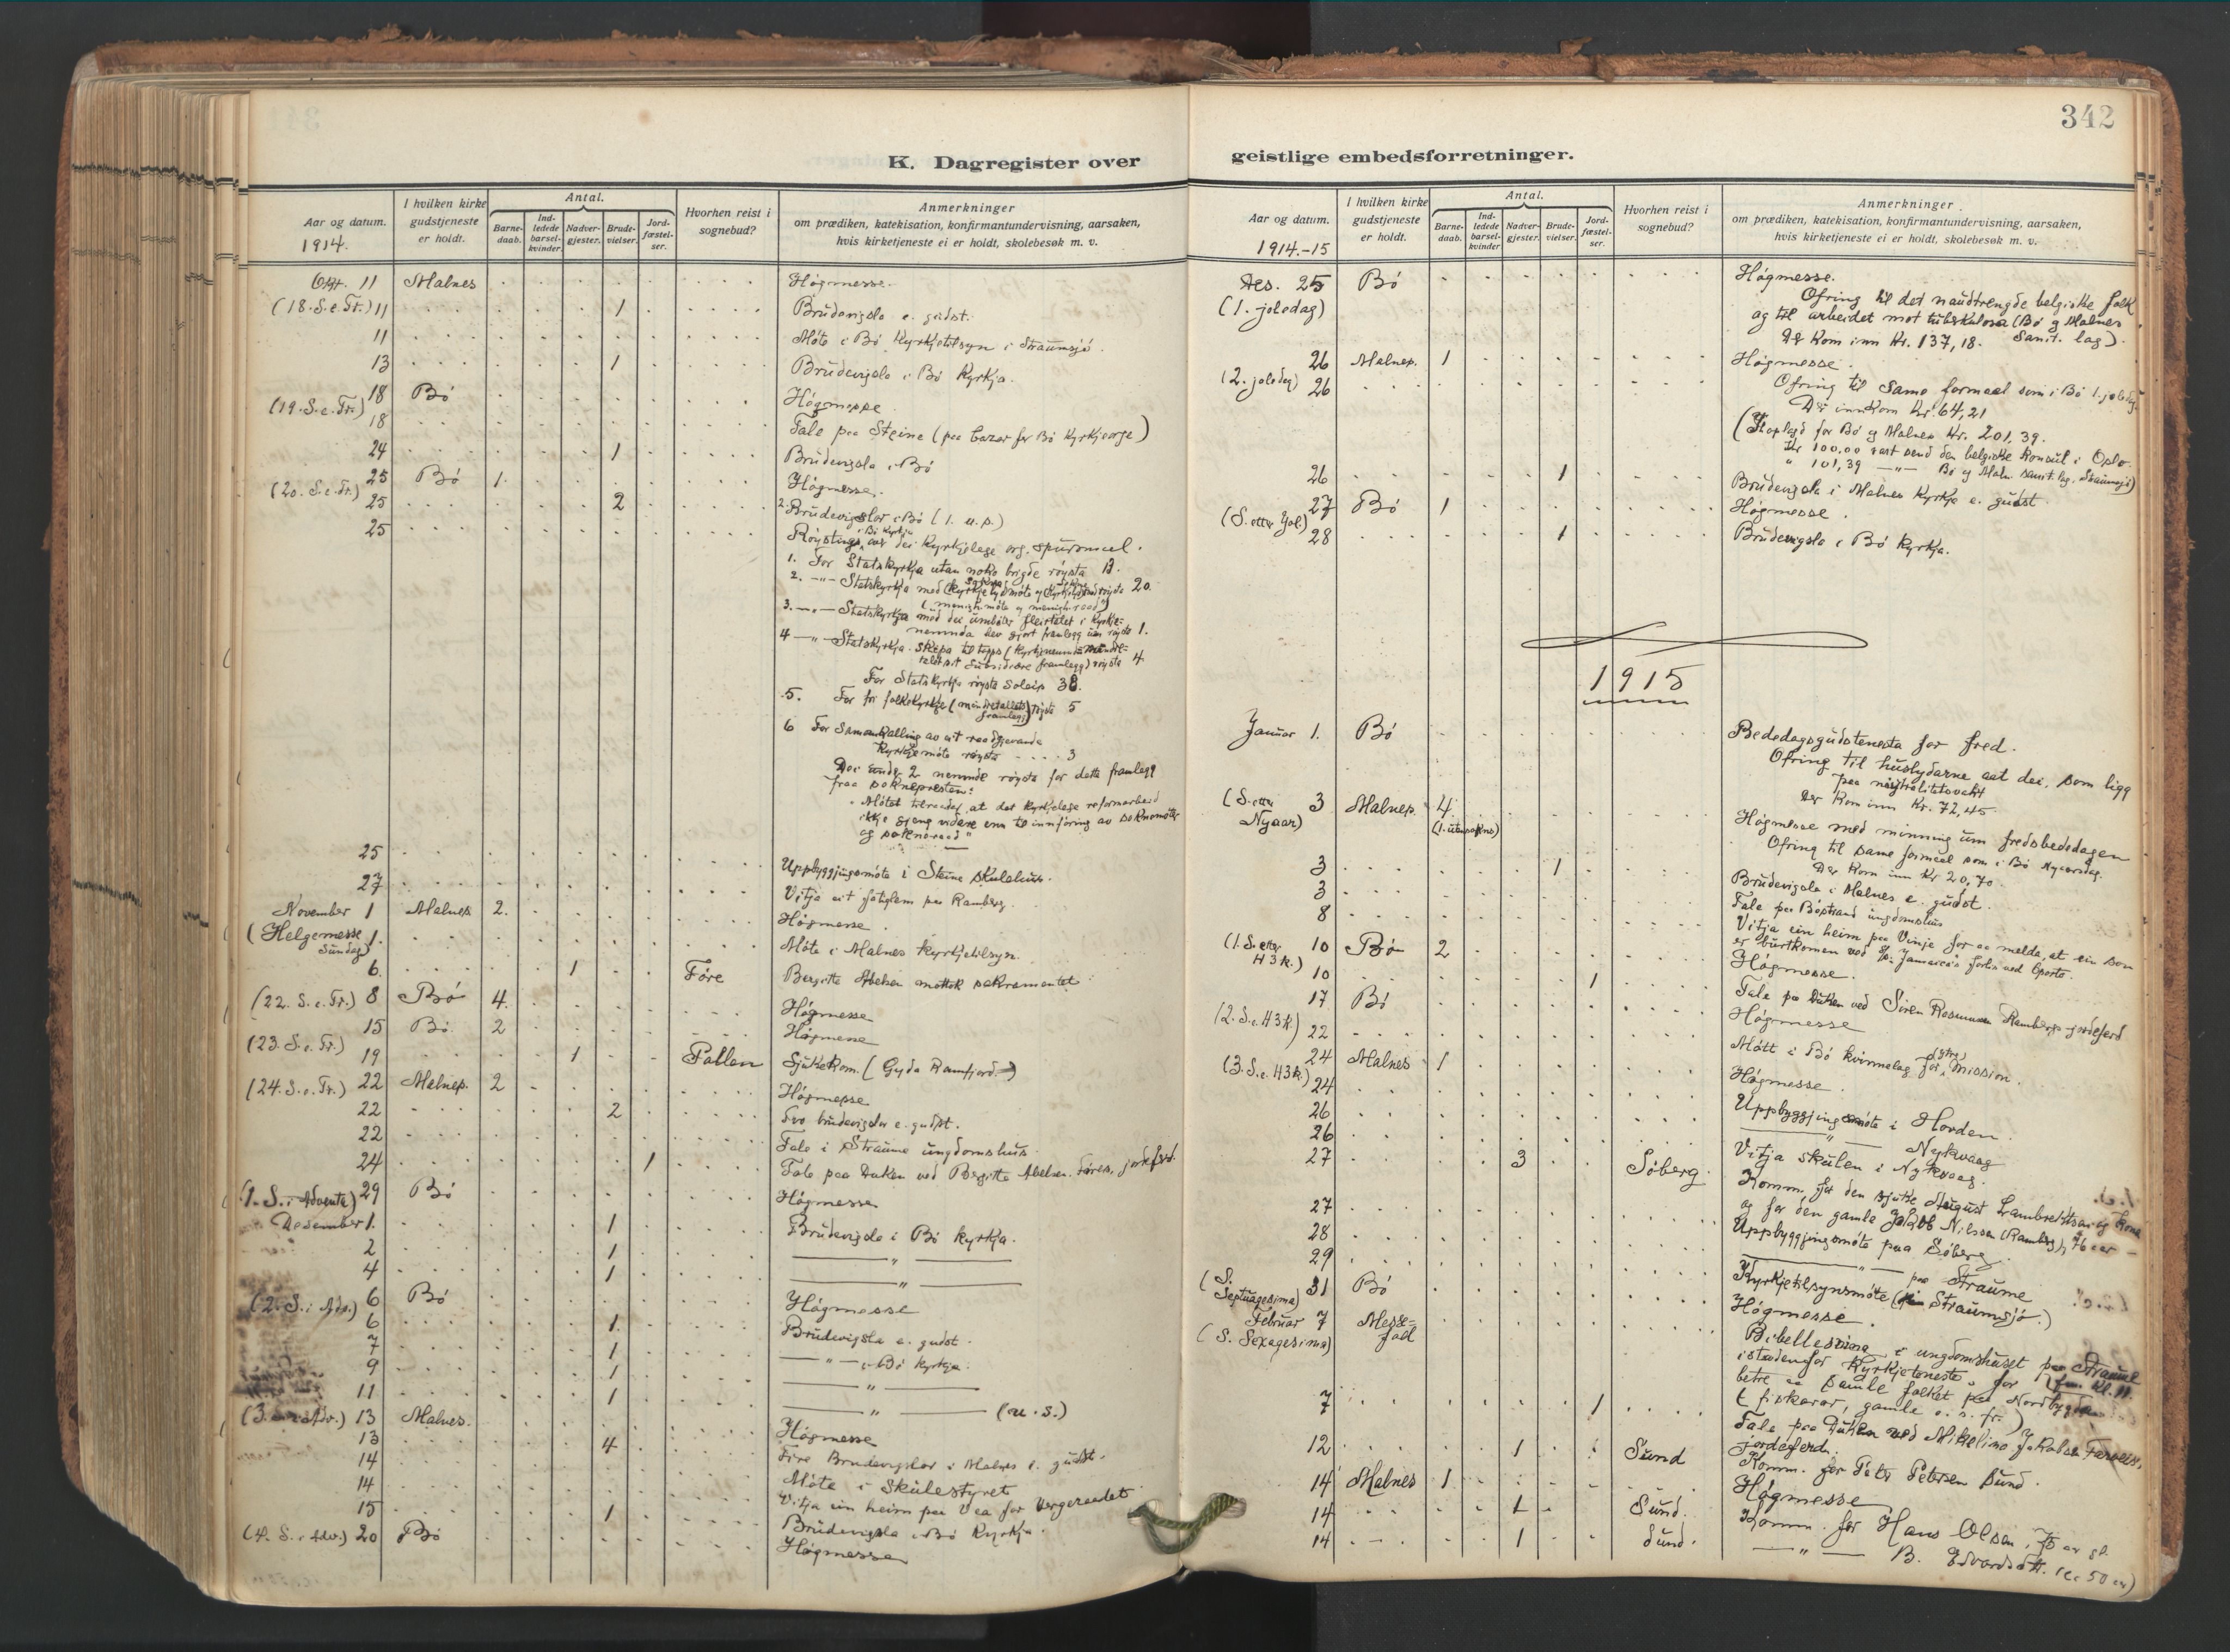 342
K. Dagregister over
Aar og datum.
1914.
I hvilken kirke gudstjeneste er holdt.
Antal.
Barnedaab.
Indledede barselkvinder.
Nadvergjester.
Brudevielser.
Jordfæstelser.
Hvorhen reist i sognebud?
Anmerkninger
om prædiken, katekisation, konfirmantundervisning, aarsaken,
hvis kirketjeneste ei er holdt, skolebesøk m. v.
Okt. 11 Malnes Høgmesse.
(18. S. e. Tr.) 11 1 Brudevigsla e. gudst.
11 Møte i Bø Kyrkjetilsyn i Straumsjø.
13 1 Brudevigsla i Bø Kyrkja.
18 Bø Høgmesse
(19. S. e. Tr.) 18 Tale paa Steine (paa bazar for Bø Kyrkjeorge)
24 1 Brudevigsla i Bø
25 Bø 1. Høgmesse.
(20. S. e. Tr.) 25 2 2 Brudevigslor i Bø (1. u. s.)
25 Røysting i Bø Kyrkja um dei kyrkjelege org. spursmaal.
1. For Statskyrkja utan noko brigde røysta 13.
2. -"- Statskyrkja med
røysta 20.
(menigh. møte og menigh. raad)
3. -"- Statskyrkja med dei umbøter fleirtalet i Kyrkje-
nemnda hev gjort framlegg um røysta 1.
4 -"- Statskyrkja
subsidiære framlegg) røysta 4.
For Statskyrkja røysta soleis 38.
5. For fri folkekyrkje (mindretallets framlegg) røysta 5
6 For Samankalling av eit raadgjevande
Kyrkjemøte røysta . . . . 3
Dei under 2 nemnde røysta for dette framlegg
fraa soknepresten:
"Møtet tilraader, at det kyrkjelege reformarbeid
ikkje gjeng vidare enn til innføring av soknemøte
og sokneraad"
25 Uppbyggjingsmøte i Steine skulehus.
27 Vitja eit fatiglem paa Ramberg.
November 1 Malnes 2. Høgmesse.
(Helgemesse Sundag) 1. Møte i Malnes Kyrkjetilsyn.
6. 1 Føre Bergitte Abelsen mottok sakramentet
(22. S. e. Tr.) 8 Bø 4. Høgmesse
15 Bø. 2 Høgmesse
(23. S. e. Tr.) 19 1 Pallen Sjukekom. (Gyda Ramfjord)
(24. S. e. Tr.) 22 Malnes. 2 Høgmesse
22 2 Tvo brudevigslor e. gudst.
22 Tale i Straume ungdomshus.
24 1 Tale paa Duken ved Bergitte Abelsen. Føres. jordeferd.
(1. S. i Adventa) 29 Bø Høgmesse
Desember 1. 1 Brudevigsla i Bø kyrkja.
2 1 — " —
4 1 — " —
(2. S. i Adv.) 6 Bø Høgmesse
6 1 Brudevigsla e. gudst.
7 1 — " — i Bø kyrkja.
9 1 — " —
11 1 — " — (u. s.)
(3. S. i Adv.) 13 Malnes. Høgmesse
13 4 Fire Brudevigslor i Malnes e. gudst.
14 Møte i Skulestyret
14 Vitja ein heim paa Vea for Vergeraadet
15 1 Brudevigsla i Bø Kyrkja.
(4. S. i Adv.) 20 Bø Høgmesse
geistlige embedsforretninger.
Aar og datum.
1914.-15
I hvilken kirke gudstjeneste er holdt.
Antal.
Barnedaab.
Indledede barselkvinder
Nadvergjester.
Brudevielser.
Jordfæstelser.
Hvorhen reist i sognebud?
Anmerkninger.
om prædiken, katekisation, konfirmantundervisning, aarsaken,
hvis kirketjeneste ei er holdt, skolebesøk m. v.
Des. 25 Bø Høgmesse.
(1. joledag) Ofring til det naudtrengde belgiske folk
og til arbeidet mot tuberkulosa (Bø og Malnes
Sanit. lag).
Der kom inn Kr. 137,18.
26 Malnes. 1 Høgmesse.
(2. joledag) 26 Ofring til same formaal som i Bø 1. joledag.
Der innkom Kr. 64,21
for Bø og Malnes Kr. 201,39.
Kr 100.00 vart send den belgiske Konsul i Oslo.
" 101,39 —"— Bø og Maln. Sanit. lag, Straumsjø)
26 1 Brudevigsla i Malnes Kyrkja e. gudst.
27 Bø 1 Høgmesse.
(S. etter Jol.) 28 1 Brudevigsla i Bø Kyrkja.
1915
Januar 1. Bø Bededagsgudstenesta for fred.
Ofring til huslydarne aat dei, som ligg
paa nøytralitetsvakt
Der kom inn Kr. 72,45
(S. etter Nyaar) 3 Malnes. 4. (1. utansokns) Høgmesse med minning um fredsbededagen
Ofring til same formaal som i Bø Nyaarsdag.
Der kom inn Kr 20,70.
3 1 Brudevigsla i Malnes e. gudst.
3 Tale paa Bøstrand ungdomshus
8 Vitja ein heim paa Vinje for aa melda, at ein son
er burtkomen ved Jamaica's forlis ved Oporto.
(1. S. etter H3k.) 10 Bø 2 Høgmesse.
10 1 Tale paa Duken ved Søren Rasmussen Rambergs jordeferd
17 Bø Høgmesse
(2. S. e. H3k.) 22 Møtt i Bø kvinnelag for (ytre) Mission.
24 Malnes 1 Høgmesse.
(3. S. e. H3k.) 24 Uppbyggjingsmøte i Hovden.
26 — " — Nykvaag
26 Vitja skulen i Nykvaag.
27 3 Søberg. Komm. for den sjuke August Lambrektsen og kona
og for den gamle Jakob Nilssen (Ramberg), 76 aar
27 Uppbyggjingsmøte paa Søberg.
28 — " — paa Straume
29 Kyrkjetilsynsmøte (Straumsjø.)
(S. Septuagesima) 31 Bø Høgmesse.
Februar 7 Messefall Bibellesning i ungdomshuset paa Straume
(S. Sexagesima) istadenfor Kyrkjeteneste for
betre aa samle folket paa Nordbygda
(fiskarar, gamle o. s. fr.)
7 1 Tale paa Duken ved Mikeline Jakobsen
jordeferd.
12 1 Sund Komm. for Peter Petersen Sund.
14 Malnes 1 Høgmesse
14 1 Sund. Komm. for Hans Olsen, 75 aar gl.
14 1 Sund. — " — B. Edvardsdtt. (ca 50 aar)